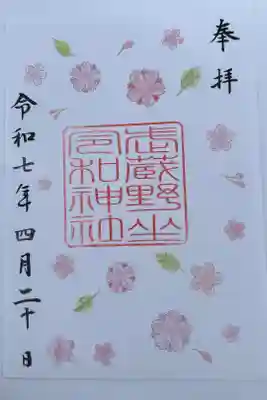 奉拝
武蔵野坐
令和神社
令和七年四月二十日